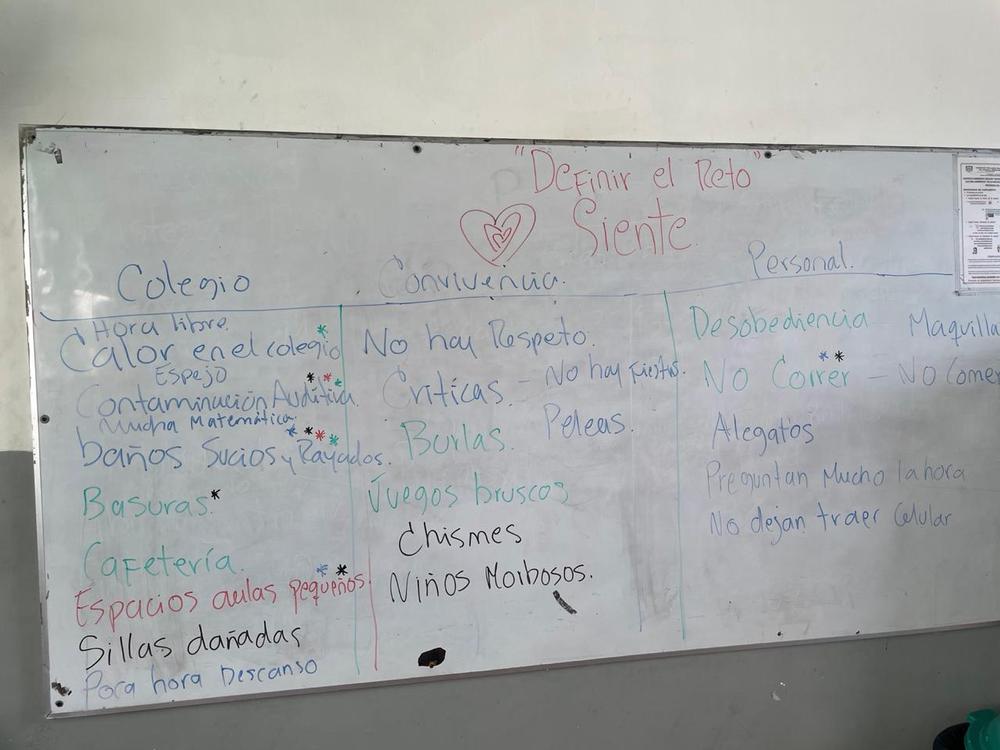 "Definir el Reto"
Siente
Colegio
Hora libre.
Calor en el colegio *
Espejo
Contaminación Auditiva ***
Mucha Matemática.
baños Sucios y Rayados. ****
Basuras *
Cafetería.
Espacios aulas pequeños **
Sillas dañadas
Poca hora Descanso
Convivencia.
No hay Respeto.
Criticas. - No hay Fiestas.
Burlas. Peleas.
Juegos bruscos
Chismes
Niños Morbosos.
Personal.
Desobediencia Maquilla
No Correr ** - No Comer
Alegatos
Preguntan Mucho la hora
No dejan traer Celular